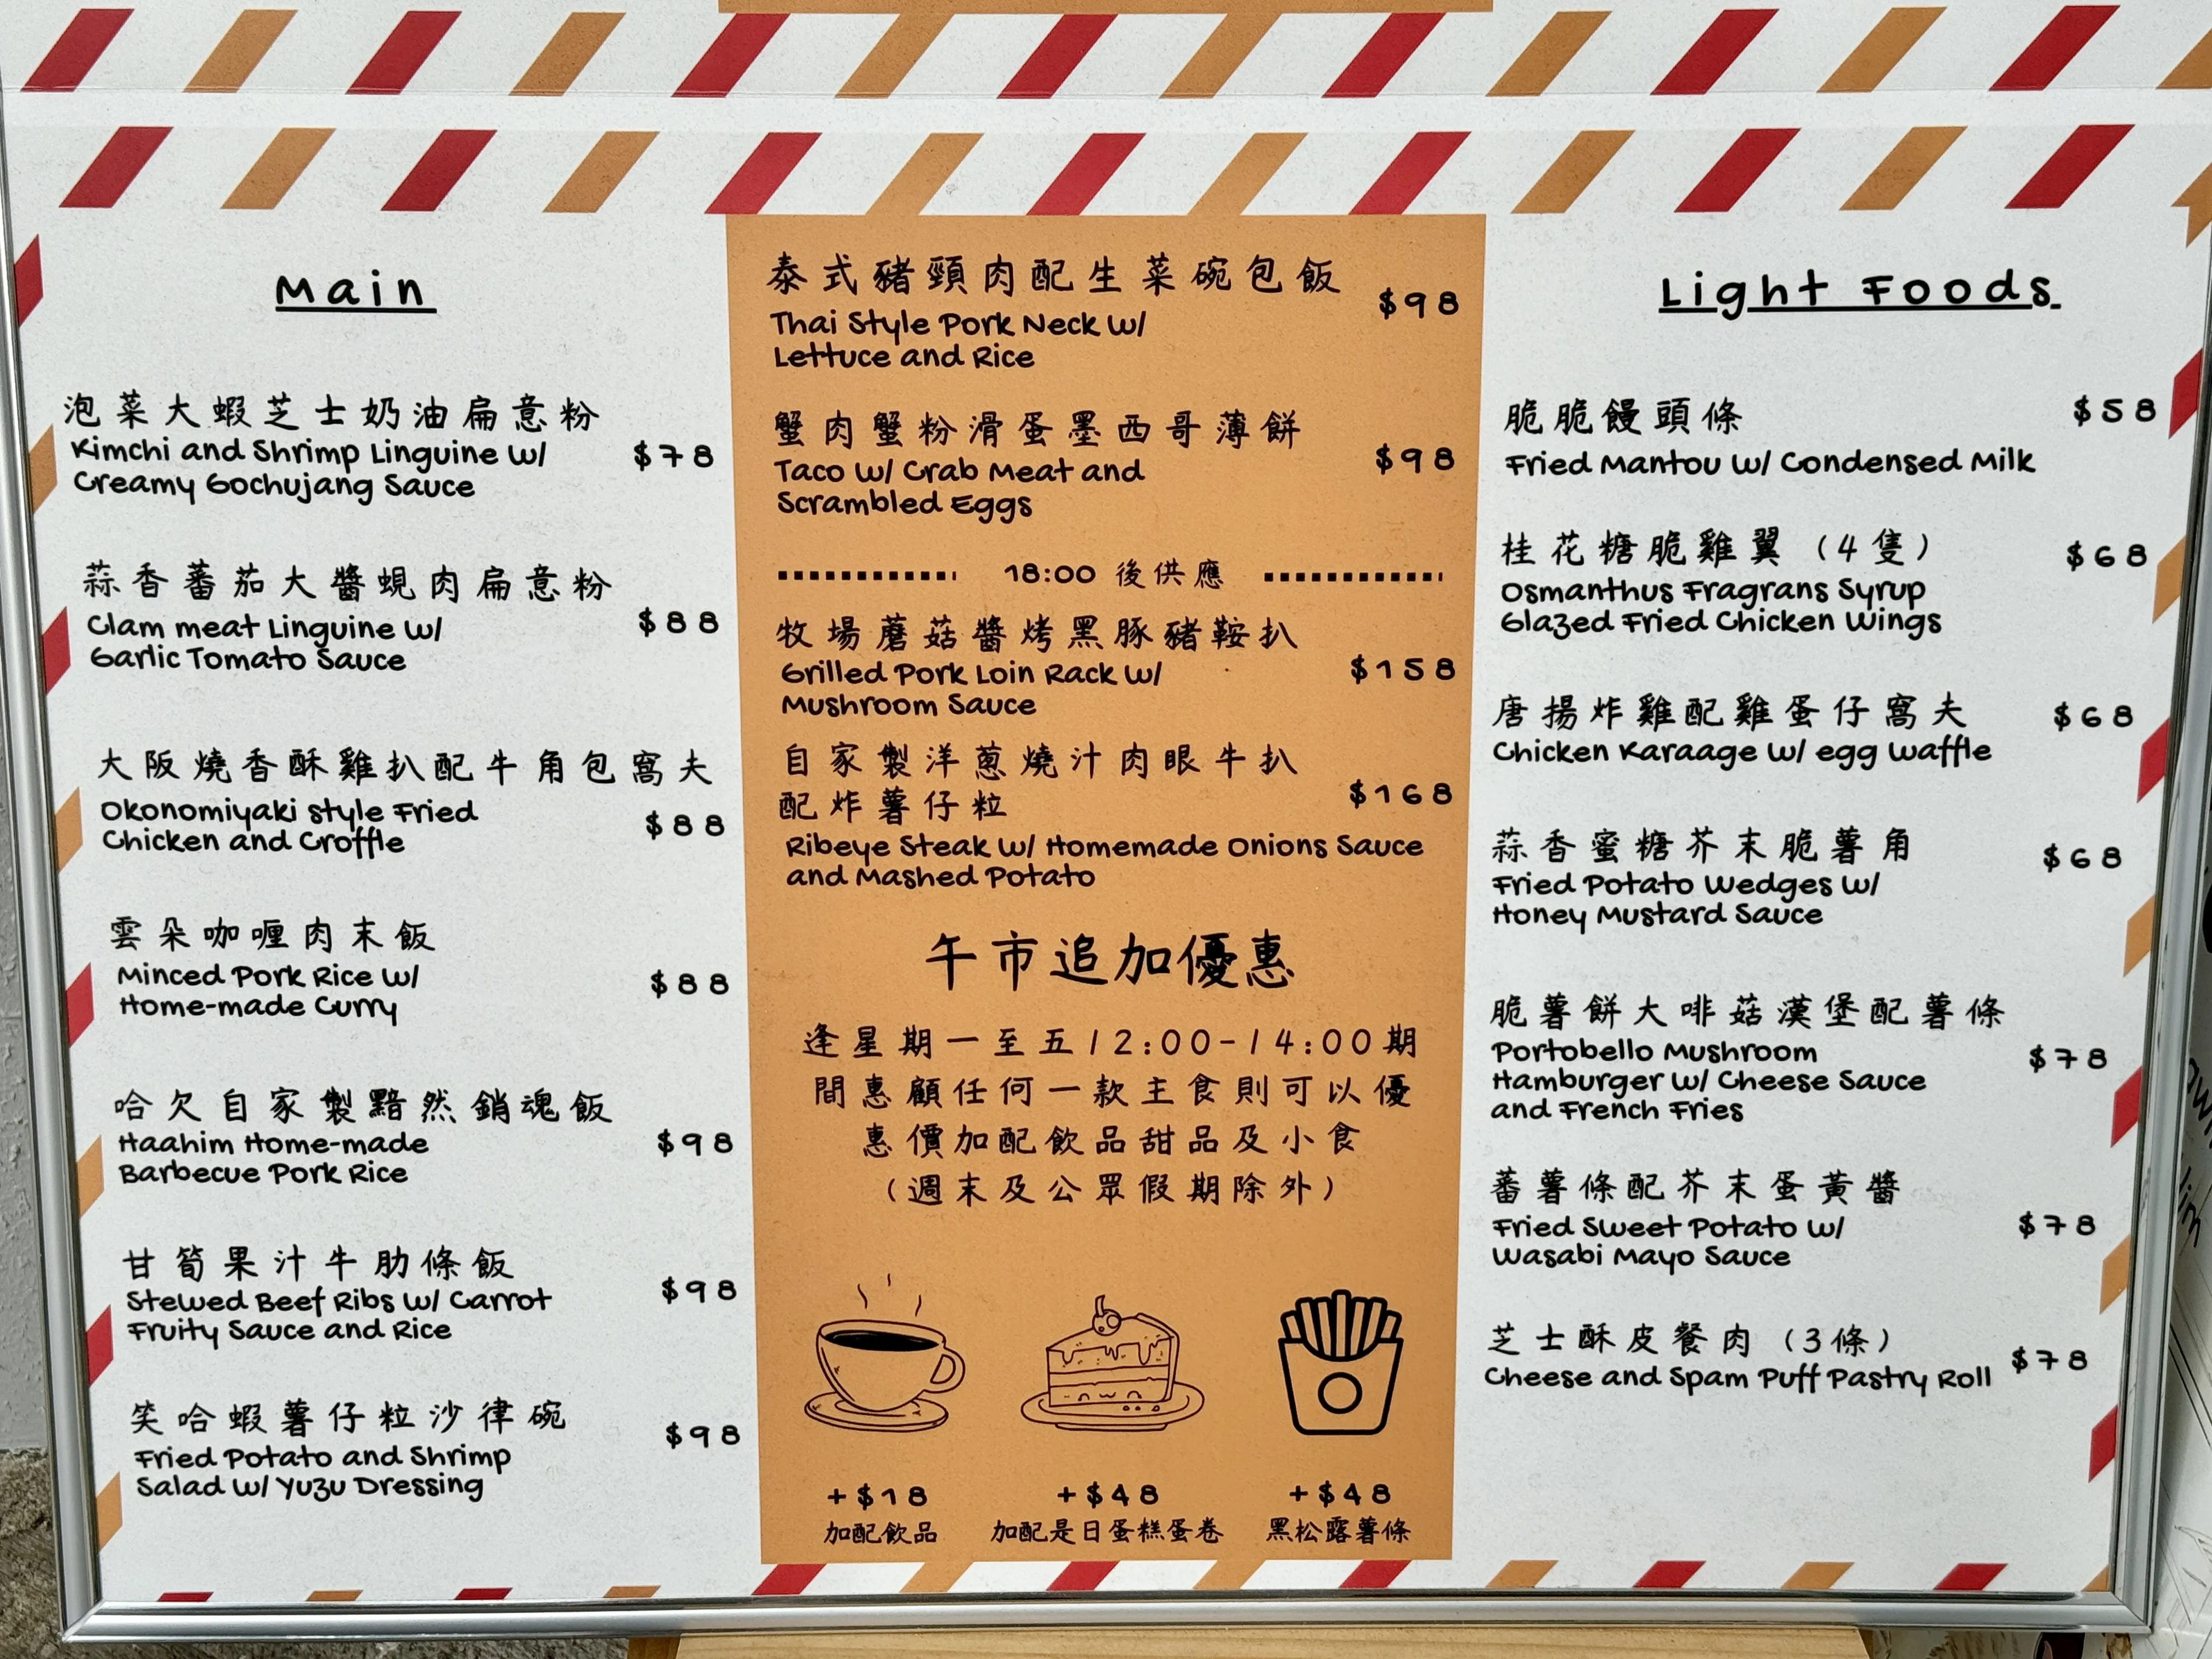 Main
泡菜大蝦芝士奶油扁意粉
Kimchi and Shrimp Linguine w/
Creamy Gochujang Sauce
$78
蒜香蕃茄大醬蜆肉扁意粉
Clam meat Linguine w/
Garlic Tomato Sauce
$88
大阪燒香酥雞扒配牛角包窩夫
Okonomiyaki style Fried
Chicken and Croffle
$88
雲朵咖喱肉末飯
Minced Pork Rice w/
Home-made Curry
$88
哈欠自家製黯然銷魂飯
Haahim Home-made
Barbecue Pork Rice
$98
甘筍果汁牛肋條飯
Stewed Beef Ribs w/ Carrot
Fruity Sauce and Rice
$98
笑哈蝦薯仔粒沙律碗
Fried Potato and Shrimp
Salad w/ Yuzu Dressing
$98
泰式豬頸肉配生菜碗包飯
Thai Style Pork Neck w/
Lettuce and Rice
$98
蟹肉蟹粉滑蛋墨西哥薄餅
Taco w/ Crab Meat and
Scrambled Eggs
$98
18:00 後供應
牧場蘑菇醬烤黑豚豬鞍扒
Grilled Pork Loin Rack w/
Mushroom Sauce
$158
自家製洋蔥燒汁肉眼牛扒
配炸薯仔粒
$168
Ribeye Steak w/ Homemade Onions Sauce
and Mashed Potato
午市追加優惠
逢星期一至五12:00-14:00期
間惠顧任何一款主食則可以優
惠價加配飲品甜品及小食
（週末及公眾假期除外）
+$18
加配飲品
+$48
加配是日蛋糕蛋卷
+$48
黑松露薯條
Light Foods
脆脆饅頭條
$58
Fried Mantou w/ Condensed Milk
桂花糖脆雞翼（4隻）
$68
Osmanthus Fragrans Syrup
Glazed Fried Chicken Wings
唐揚炸雞配雞蛋仔窩夫
$68
Chicken Karaage w/ egg waffle
蒜香蜜糖芥末脆薯角
$68
Fried Potato Wedges w/
Honey Mustard Sauce
脆薯餅大啡菇漢堡配薯條
Portobello Mushroom
$78
Hamburger w/ Cheese Sauce
and French Fries
蕃薯條配芥末蛋黃醬
$78
Fried Sweet Potato w/
Wasabi Mayo Sauce
芝士酥皮餐肉（3條）
$78
Cheese and Spam Puff Pastry Roll